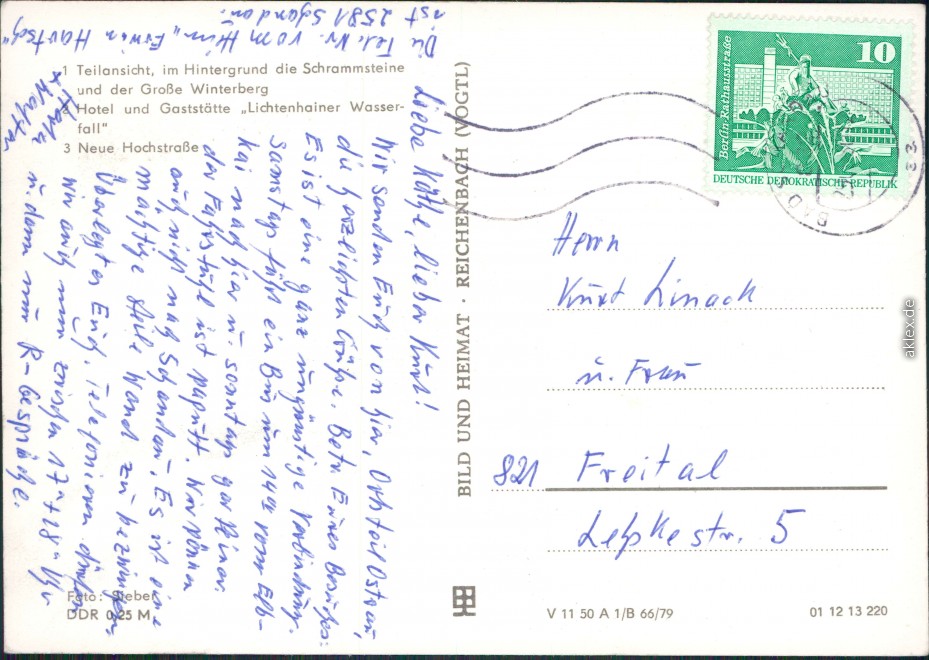 1 Teilansicht, im Hintergrund die Schrammsteine
und der Große Winterberg
2 Hotel und Gaststätte „Lichtenhainer Wasser-
fall"
3 Neue Hochstraße
Liebe Käthe, lieber Kurt!
Wir senden Euch von hier, Ortsteil Ostrau,
die herzlichsten Grüße. Betr. Eures Besuches:
Es ist eine ganz ungünstige Verbindung.
Samstag fährt ein Bus um 14°° vom Elb-
kai nach hier u. sonntag gar keiner.
der Fahrstuhl ist kaputt. Wir können
auch nicht nach Schandau. Es ist eine
mächtige steile Wand zu bezwingen.
Überlegt es Euch. Telefonieren dürfen
wir auch nur zwischen 17°° + 18°° Uhr
u. dann nur R-Gespräche.
Die Tel. Nr. vom Heim „Erwin Hartsch"
ist 2581 Schandau.
+ Walter
BILD UND HEIMAT · REICHENBACH (VOGTL)
10
Berlin-Rathausstraße
DEUTSCHE DEMOKRATISCHE REPUBLIK
BAD
Herrn
Kurt Linack
u. Frau
821 Freital
Leßkestr. 5
Foto: Sieber
DDR 0,25 M
V 11 50 A 1/B 66/79
01 12 13 220
aklex.de